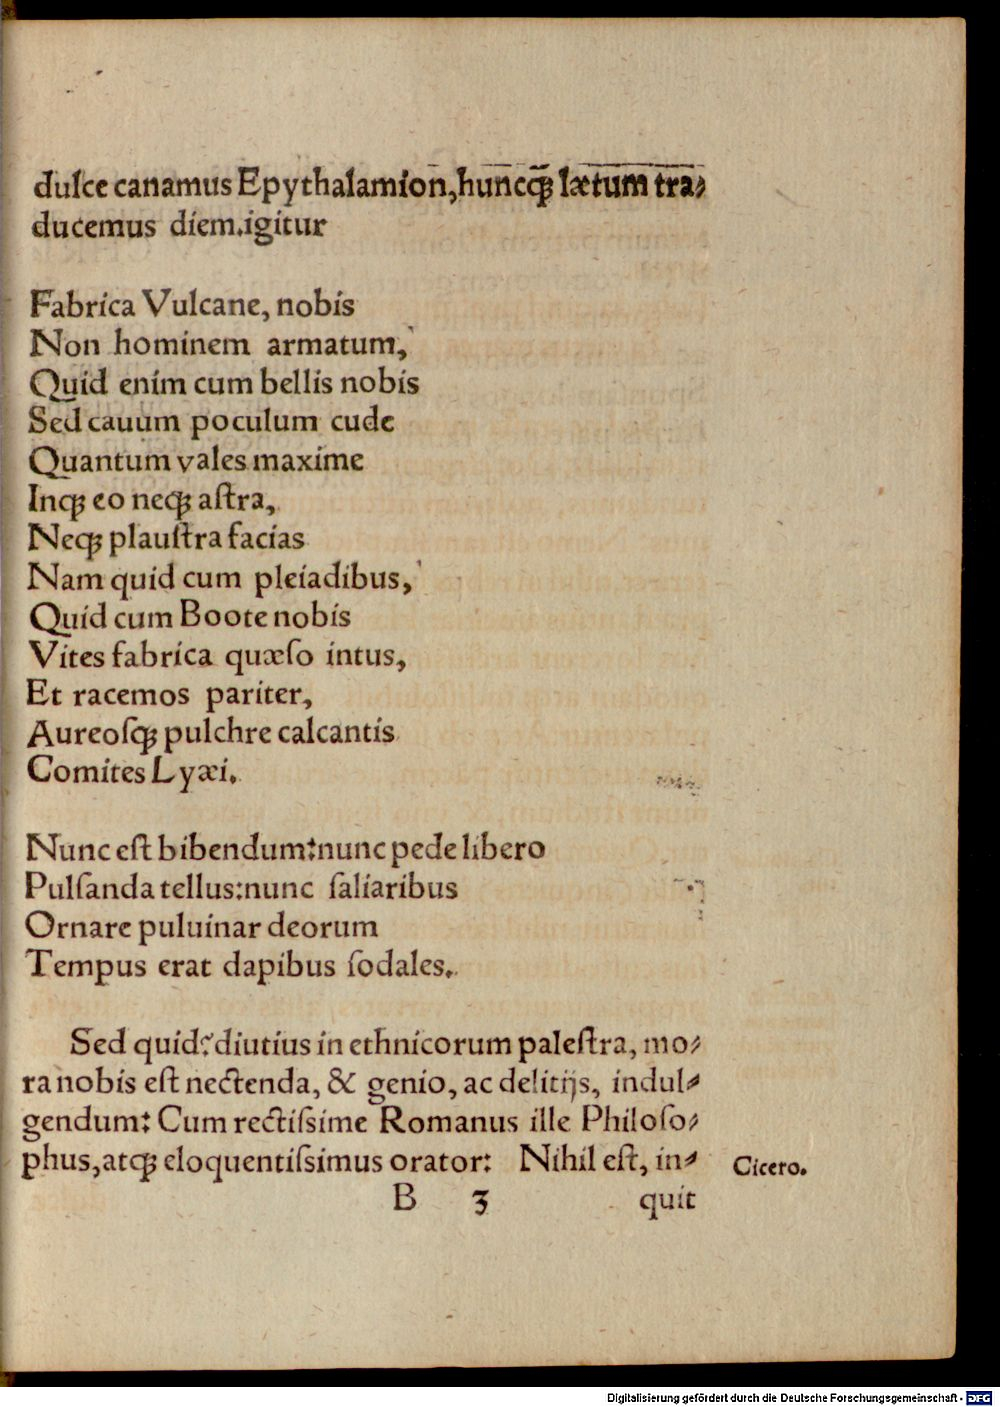 dulce canamus Epythalamion, huncq́ꝫ lætum tra⸗
ducemus diem. igitur
Fabrica Vulcane, nobis
Non hominem armatum,
Quid enim cum bellis nobis
Sed cauum poculum cude
Quantum vales maxime
Inqꝫ eo neqꝫ aſtra,
Neqꝫ plauſtra facias
Nam quid cum pleiadibus,
Quid cum Boote nobis
Vites fabrica quæſo intus,
Et racemos pariter,
Aureoſqꝫ pulchre calcantis
Comites Lyæi.
Nunc eſt bibendum: nunc pede libero
Pulſanda tellus: nunc ſaliaribus
Ornare puluinar deorum
Tempus erat dapibus ſodales.
Sed quid? diutius in ethnicorum paleſtra, mo⸗
ra nobis eſt nectenda, & genio, ac delitijs, indul⸗
gendum: Cum rectiſsime Romanus ille Philoſo⸗
phus, atqꝫ eloquentiſsimus orator: Nihil eſt, in⸗
Cicero.
B 3 quit
Digitalisierung gefördert durch die Deutsche Forschungsgemeinschaft - DFG